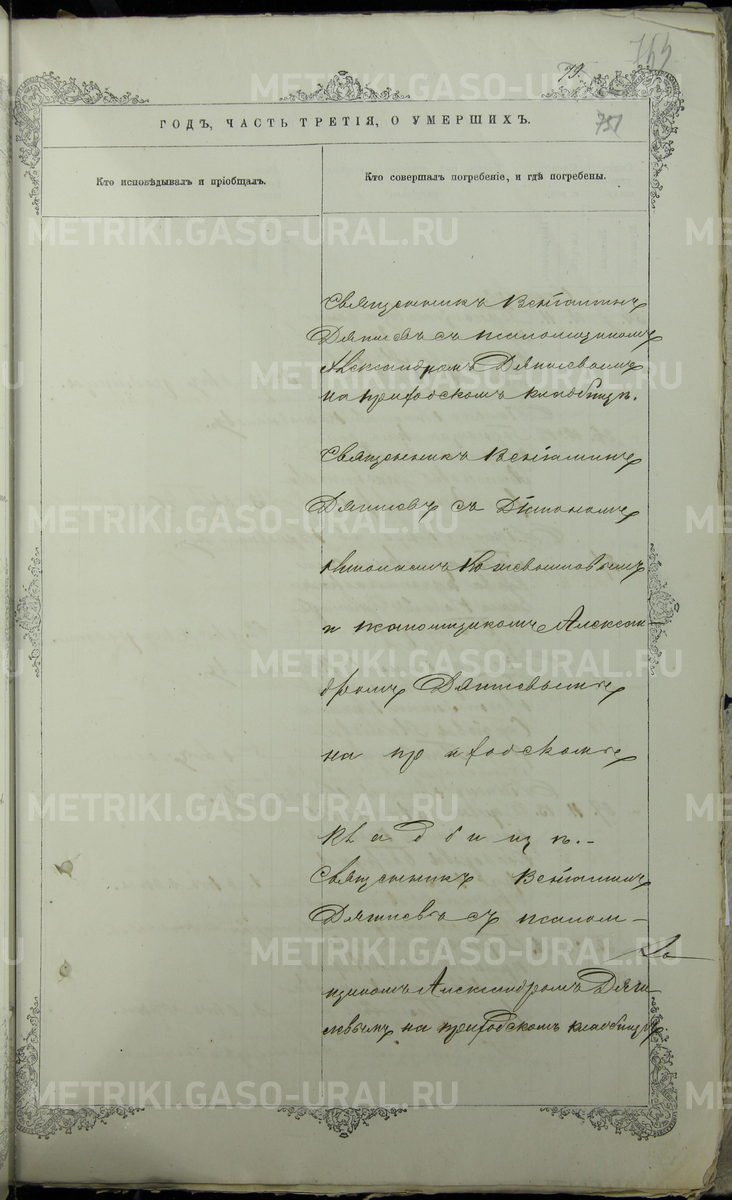 79.
753
751
ГОДЪ, ЧАСТЬ ТРЕТІЯ, О УМЕРШИХЪ.
Кто исповѣдывалъ и пріобщалъ.
Кто совершалъ погребеніе, и гдѣ погребены.
Священникъ Веніаминъ
съ псаломщикомъ
Александромъ
на приходскомъ кладбищѣ.
Священникъ Веніаминъ
съ Діакономъ
и псаломщикомъ Алексан
дромъ
на приходскомъ
кладбищѣ.-
Священникъ Веніаминъ
съ псалом-
щикомъ Александромъ
на приходскомъ кладбищѣ
METRIKI.GASO-URAL.RU